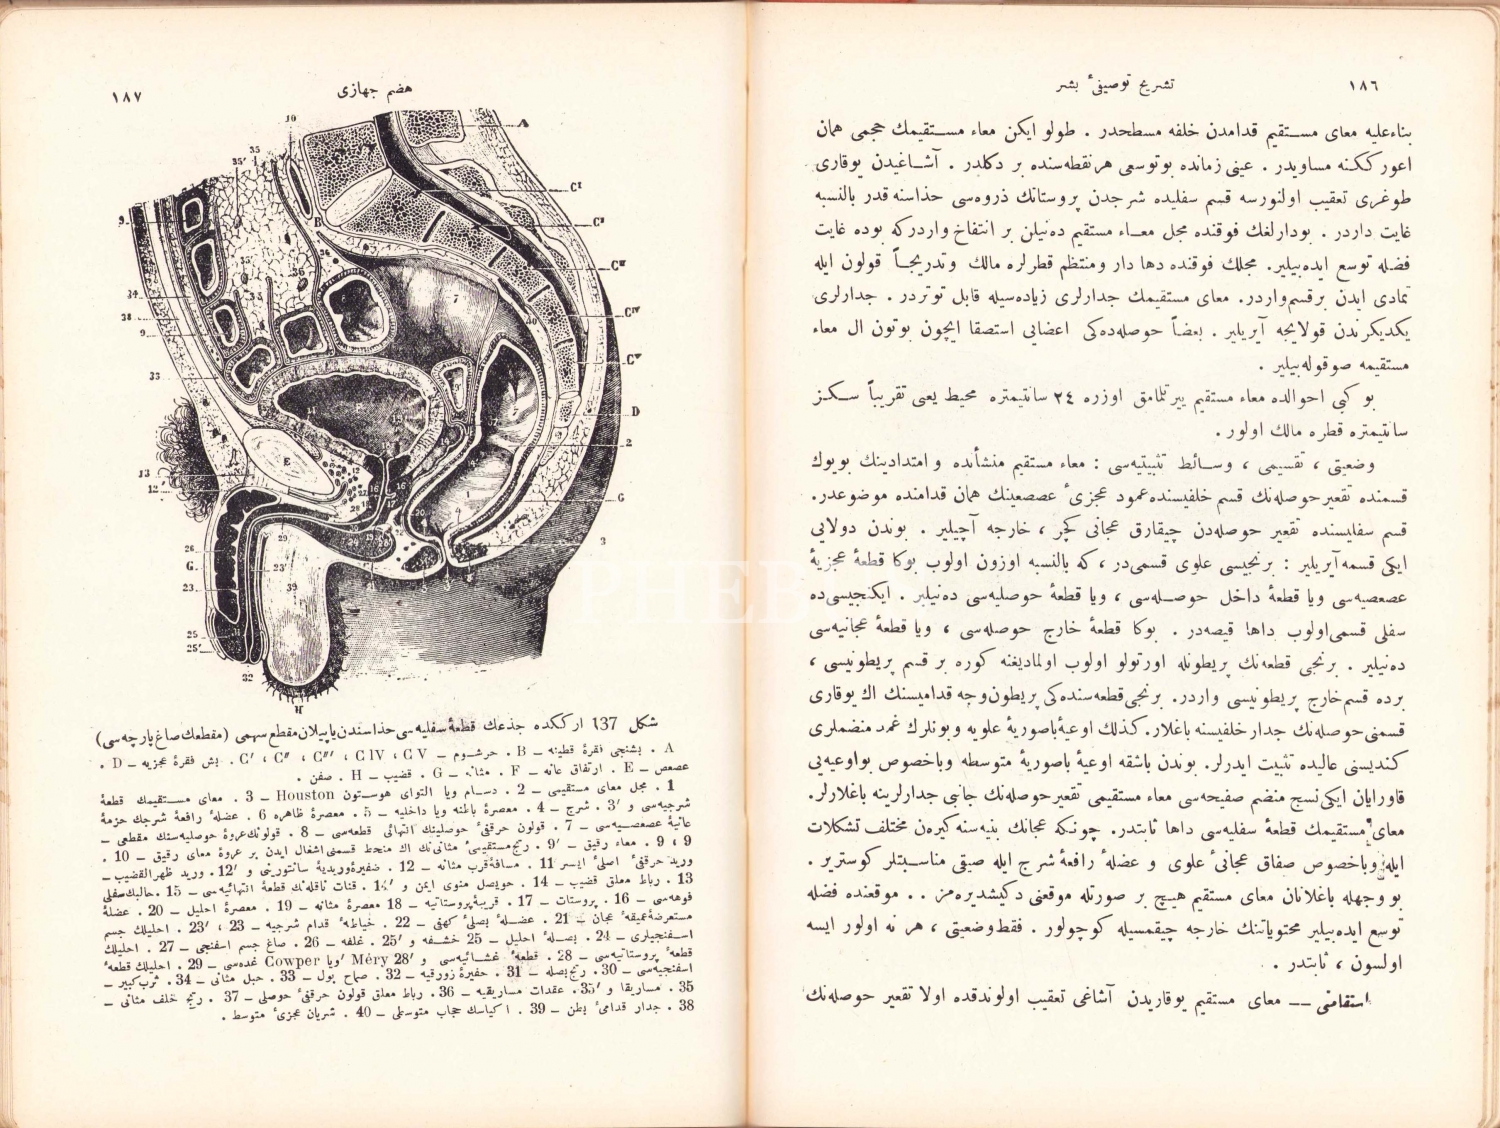 ١٨٦
تشریح توصیفیٔ بشر
بناءعلیه معای مستقیم قدامدن خلفه مسطحدر . طولو ایکن معاء مستقیمك حجمی همان
اعورککنه مساویدر . عینی زمانده بوتوسعی هرنقطه‌سنده بر دکلدر . آشاغیدن یوقاری
طوغری تعقیب اولنورسه قسم سفلیده شرجدن پروستاتك ذروه‌سی حذاسنه قدر بالنسبه
غایت داردر . بودارلغك فوقنده مجل معاء مستقیم ده‌نیلن بر انتفاخ واردرکه بوده غایت
فضله توسع ایده‌بیلیر. مجلك فوقنده دها دار ومنتظم قطرلره مالك وتدریجاً قولون ایله
تمادی ایدن برقسم‌واردر. معای مستقیمك جدارلری زیاده‌سیله قابل توتردر . جدارلری
یکدیکرندن قولایجه آیریلیر . بعضاً حوصله‌ده‌کی اعضایی استصقا ایچون بوتون ال معاء
مستقیمه صوقوله‌بیلیر .
بو کبی احوالده معاء مستقیم ییرتلمامق اوزره ٢٤ سانتیمتره محیط یعنی تقریباً سکز
سانتیمتره قطره مالك اولور .
وضعیتی ، تقسیمی ، وسائط تثبیتیه‌سی : معاء مستقیم منشأنده و امتدادینك بویوك
قسمنده تقعیر حوصله‌نك قسم خلفیسنده عمود عجزیٔ عصعصینك همان قدامنده موضوعدر.
قسم سفلیسنده تقعیر حوصله‌دن چیقارق عجانی کچر ، خارجه آچیلیر . بوندن دولایی
ایکی قسمه آیریلیر : برنجیسی علوی قسمی‌در ، که بالنسبه اوزون اولوب بوکا قطعۀ عجزیۀ
عصعصیه‌سی ویا قطعۀ داخل حوصله‌سی ، ویا قطعۀ حوصلیه‌سی ده‌نیلیر . ایکنجیسی‌ده
سفلی قسمی‌اولوب داها قیصه‌در . بوکا قطعۀ خارج حوصله‌سی ، ویا قطعۀ عجانیه‌سی
ده‌نیلیر . برنجی قطعه‌نك پریطونله اورتولو اولوب اولمادیغنه کوره بر قسم پریطونیسی ،
برده قسم خارج پریطونیسی واردر. برنجی‌قطعه‌سنده‌کی پریطون‌وجه قدامیسنك اك یوقاری
قسمنی حوصله‌نك جدار خلفیسنه باغلار. کذلك اوعیۀ‌باصوریۀ علویه و بونلرك غمد منضملری
کندیسنی عالیده تثبیت ایدرلر. بوندن باشقه اوعیۀ باصوریۀ متوسطه وباخصوص بواوعیه‌یی
قاورایان ایکی‌نسج منضم صفیحه‌سی معاء مستقیمی تقعیر حوصله‌نك جانبی جدارلرینه باغلارلر.
معای مستقیمك قطعۀ سفلیه‌سی داها ثابتدر. چونکه عجانك بنیه‌سنه کیره‌ن مختلف تشکلات
ایله وباخصوص صفاق عجانیٔ علوی و عضلۀ رافعۀ شرج ایله صیقی مناسبتلر کوستریر .
بو وجهله باغلانان معای مستقیم هیچ بر صورتله موقعنی دکیشدیره‌مز . . موقعنده فضله
توسع ایده‌بیلیر محتویاتنك خارجه چیقمسیله کوچولور . فقط وضعیتی ، هر نه اولور ایسه
اولسون ، ثابتدر .
استقامتی — معای مستقیم یوقاریدن آشاغی تعقیب اولوندقده اولا تقعیر حوصله‌نك
١٨٧
هضم جهازی
شکل 137 ارککده جذعك قطعۀ سفلیه‌سی حذاسندن یاپیلان مقطع سهمی (مقطعك صاغ پارچه‌سی)
A . بشنجی فقرۀ قطنیه – B . خرشوم – C' ، C'' ، C''' ، C IV ، C V . بش فقرۀ عجزیه – D .
عصعص – E . ارتفاق عانه – F . مثانه – G . قضیب – H . صفن .
1 . مجل معای مستقیمی – 2 . دسام ویا التوای هوستون Houston – 3 . معای مستقیمك قطعۀ
شرجیه‌سی و '3 . شرج – 4 . معصرۀ باطنه ویا داخلیه – 5 . معصرۀ ظاهره 6 . عضلۀ رافعۀ شرجك حزمۀ
عانیۀ عصعصیه‌سی – 7 . قولون حرقفیٔ حوصلینك انتهائی قطعه‌سی – 8 . قولونك عروۀ حوصلیه‌سنك مقطعی –
9 ، 9 . معاء رقیق – '9 . رتج‌مستقیمیٔ مثانی‌نك اك منحط قسمنی اشغال ایدن بر عروۀ معای رقیق – 10 .
ورید حرقفیٔ اصلیٔ ایسر 11 . مسافۀ‌قرب مثانه – 12 . ضفیرۀ‌وریدیۀ سانتورینی و '12 . ورید ظهرالقضیب –
13 . رباط معلق قضیب – 14 . حویصل منوی ایمن و '14 . قنات ناقله‌نك قطعۀ انتهائیه‌سی – 15 . حالبك‌سفلی
فوهه‌سی – 16 . پروستات – 17 . قریبۀ پروستاتیه – 18 معصرۀ مثانه – 19 . معصرۀ احلیل – 20 . عضلۀ
مستعرضۀ‌عمیقۀ عجان – 21 . عضلۀ بصلیٔ کهفی – 22 . خیاطۀ قدام شرجیه – 23 ، '23 . احلیلك جسم
اسفنجیلری – 24 . بصلۀ احلیل – 25 خشفه و '25 . غلفه – 26 . صاغ جسم اسفنجی – 27 . احلیلك
قطعۀ پروستاتیه‌سی – 28 . قطعۀ غشائیه‌سی و '28 Méry ویا Cowper غده‌سی – 29 . احلیلك قطعۀ
اسفنجیه‌سی – 30 . رتج‌بصله – 31 . حفیرۀ زورقیه – 32 . صماخ بول – 33 . حبل مثانی – 34 . ثرب کبیر –
35 . مساریقا و '35 . عقدات مساریقیه – 36 . رباط معلق قولون حرقفیٔ حوصلی – 37 . رتج خلف مثانی –
38 . جدار قدامیٔ بطن – 39 . اکیاسك حجاب متوسطی – 40 . شریان عجزیٔ متوسط .
PHEB